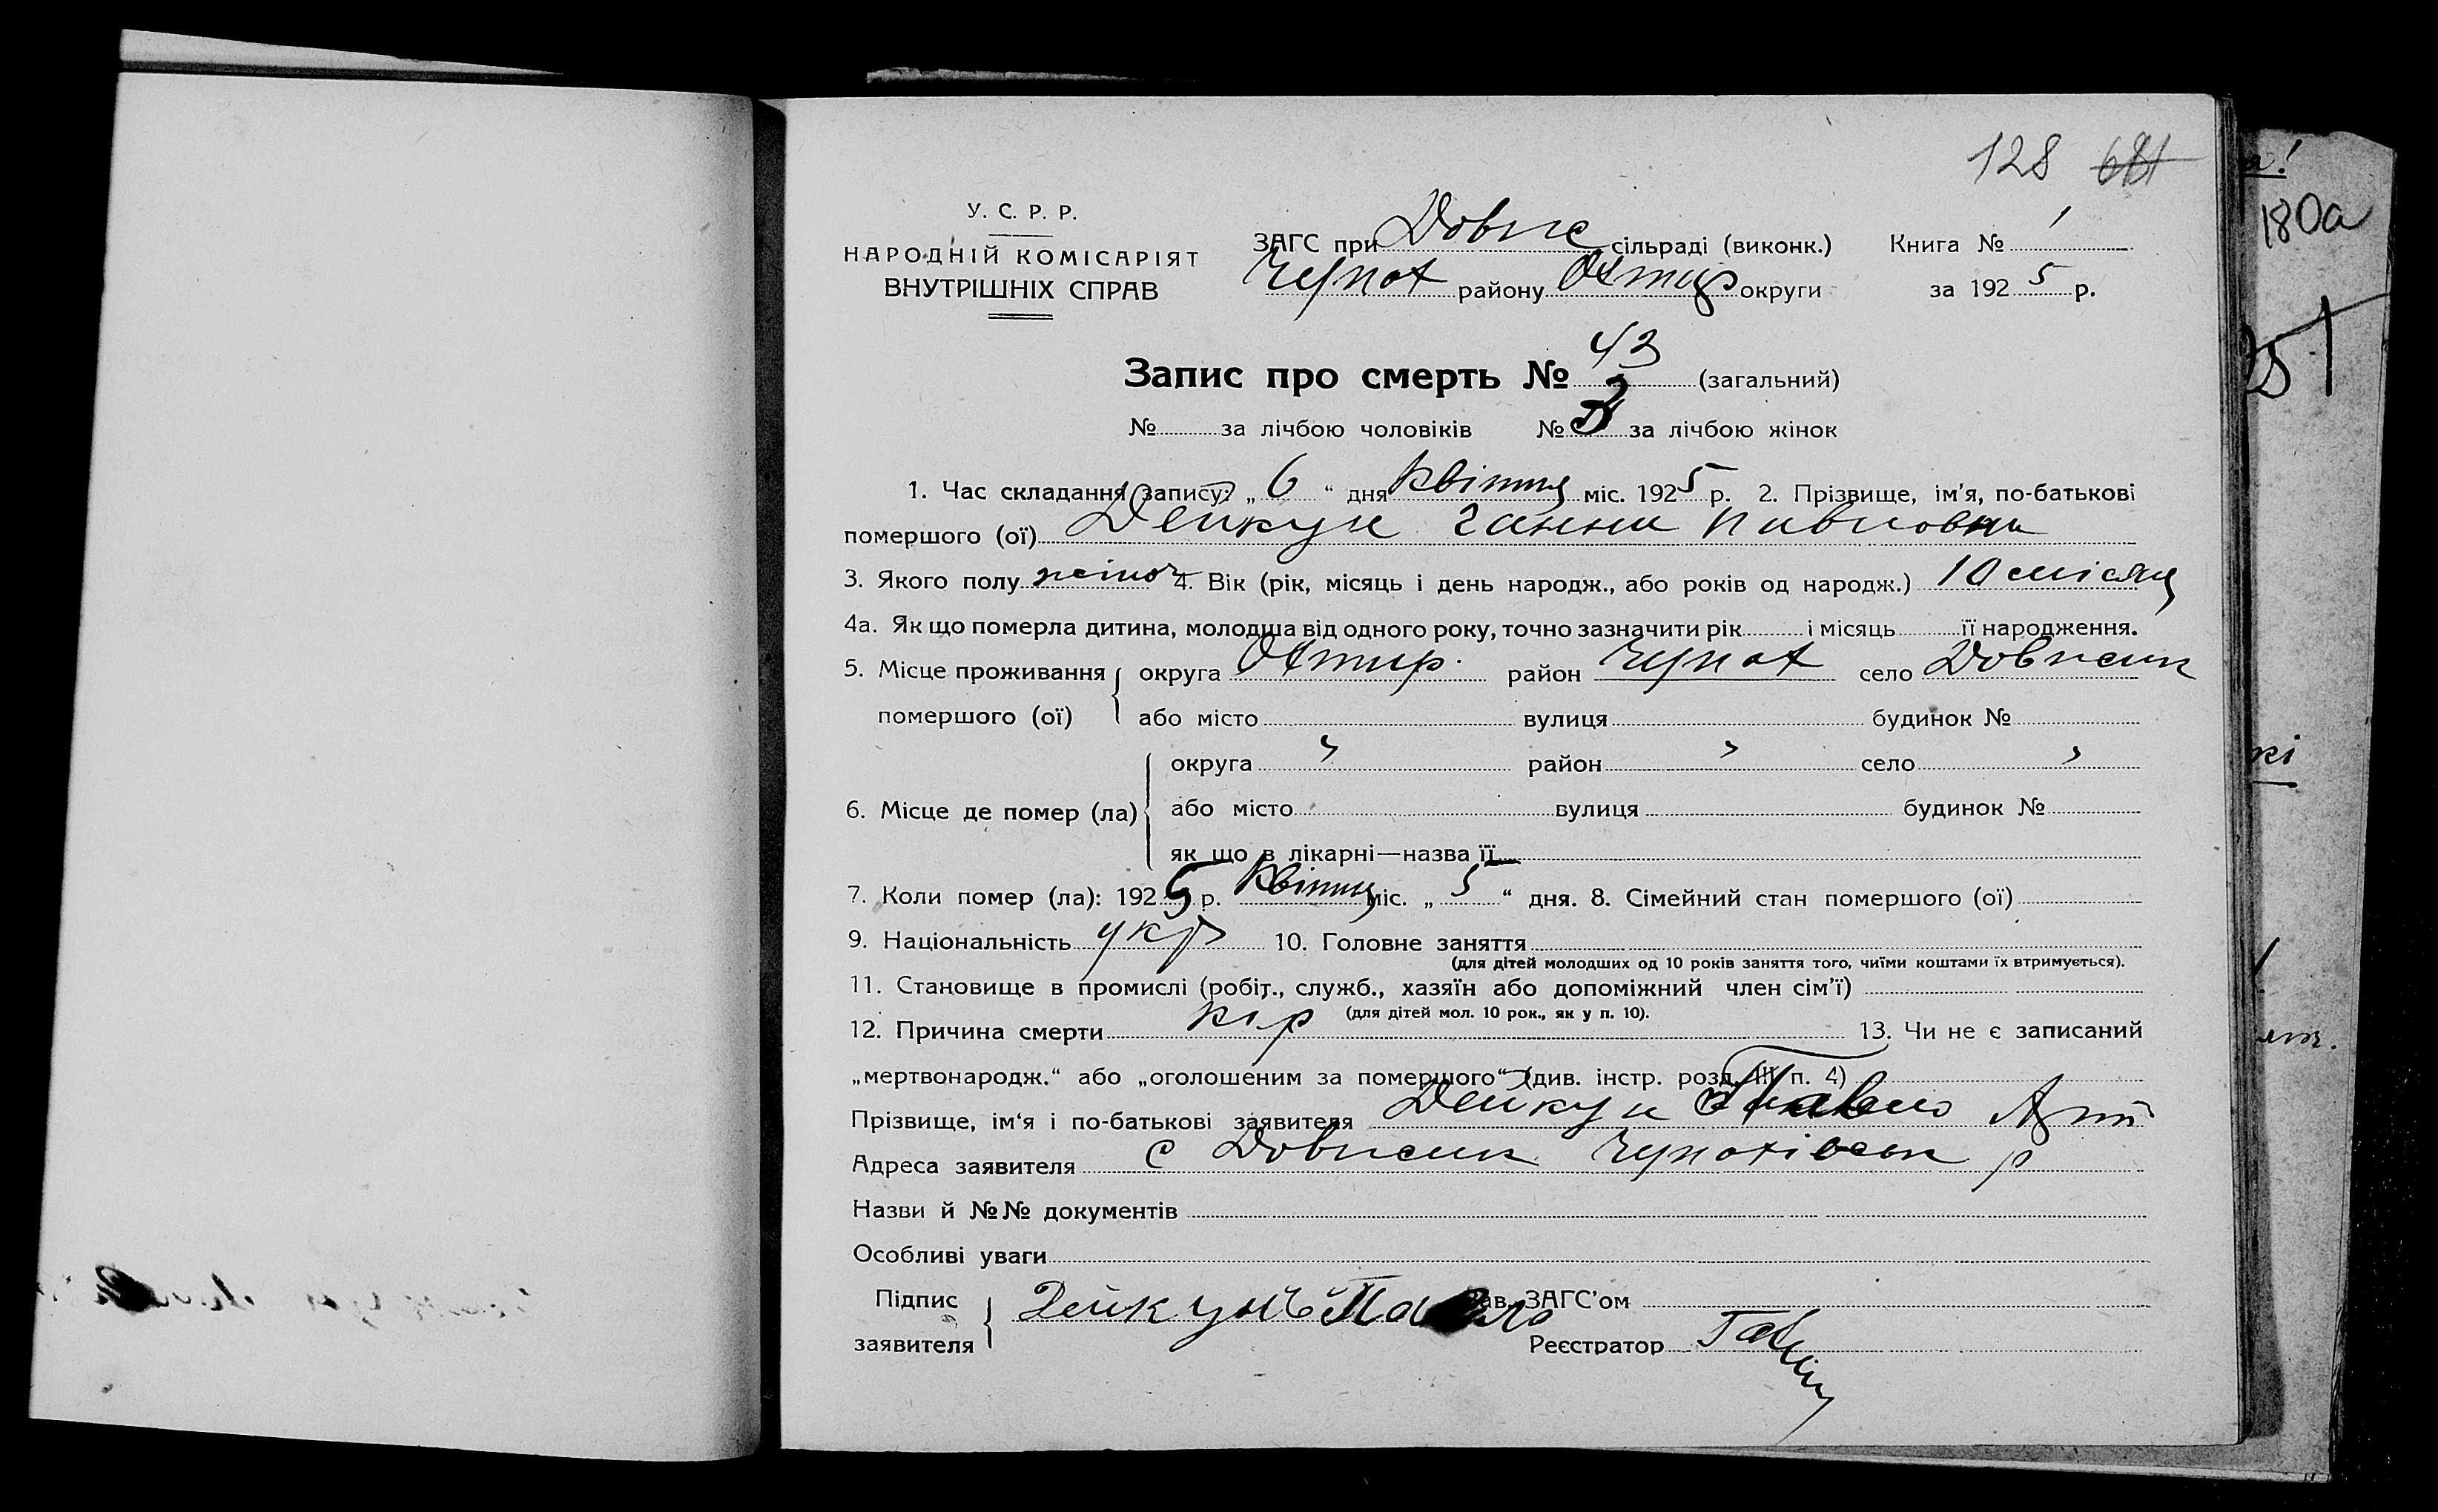 128 681
У. С. Р. Р.
НАРОДНІЙ КОМІСАРІЯТ
ВНУТРІШНІХ СПРАВ
ЗАГС при Довж сільраді (виконк.) Книга № 1
Чупах району Охтир округи за 1925 р.
Запис про смерть № 43 (загальний)
№ за лічбою чоловіків № за лічбою жінок
1. Час складання запису: „6“ дня Квітня міс. 1925 р. 2. Прізвище, ім’я, по-батькові
помершого (ої) Дейкун Ганна Павловна
3. Якого полу жіноч 4. Вік (рік, місяць і день народж., або років од народж.) 10 місяц
4а. Як що померла дитина, молодша від одного року, точно зазначити рік і місяць її народження.
5. Місце проживання помершого (ої) округа Охтир. район Чупах село Довжик
або місто вулиця будинок №
6. Місце де помер (ла) округа " район " село "
або місто вулиця будинок №
як що в лікарні—назва її
7. Коли помер (ла): 1925 р. Квітня міс. „5“ дня. 8. Сімейний стан помершого (ої)
9. Національність укр 10. Головне заняття
(для дітей молодших од 10 років заняття того, чиїми коштами їх втримується).
11. Становище в промислі (робіт., служб., хазяїн або допоміжний член сім’ї)
(для дітей мол. 10 рок., як у п. 10).
12. Причина смерти кір 13. Чи не є записаний
„мертвонародж.“ або „оголошеним за помершого“ (див. інстр. розд. III п. 4)
Прізвище, ім‘я і по-батькові заявителя Дейкун Павло
Адреса заявителя с Довжик Чупахівськ р
Назви й №№ документів
Особливі уваги
Підпис заявителя Дейкунъ Павло Зав. ЗАГС’ом
Реєстратор
180а
кі